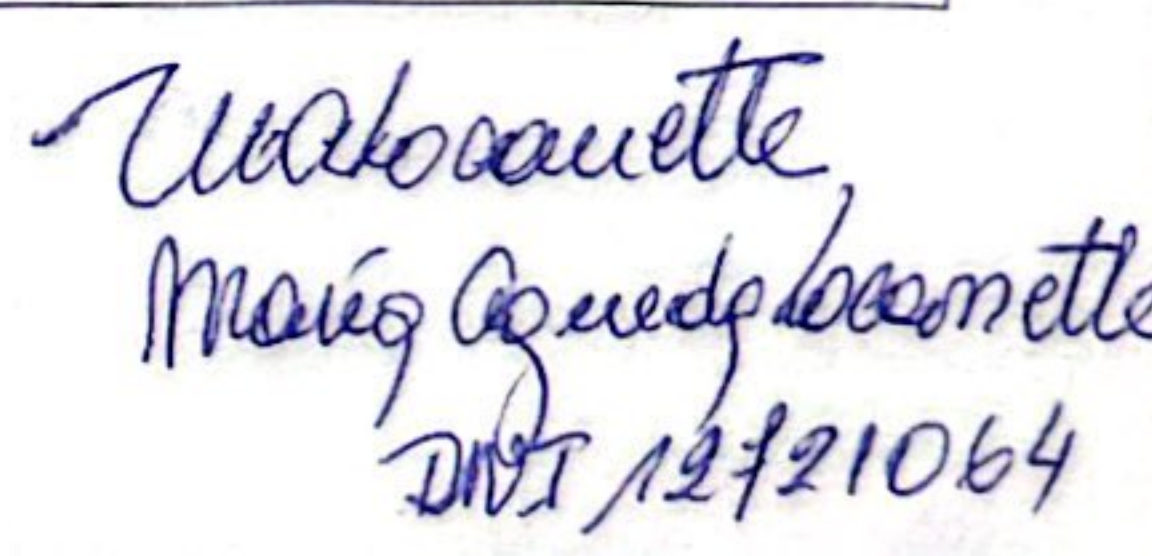 MALocanette
María Agueda Locanette
DNI 12721064